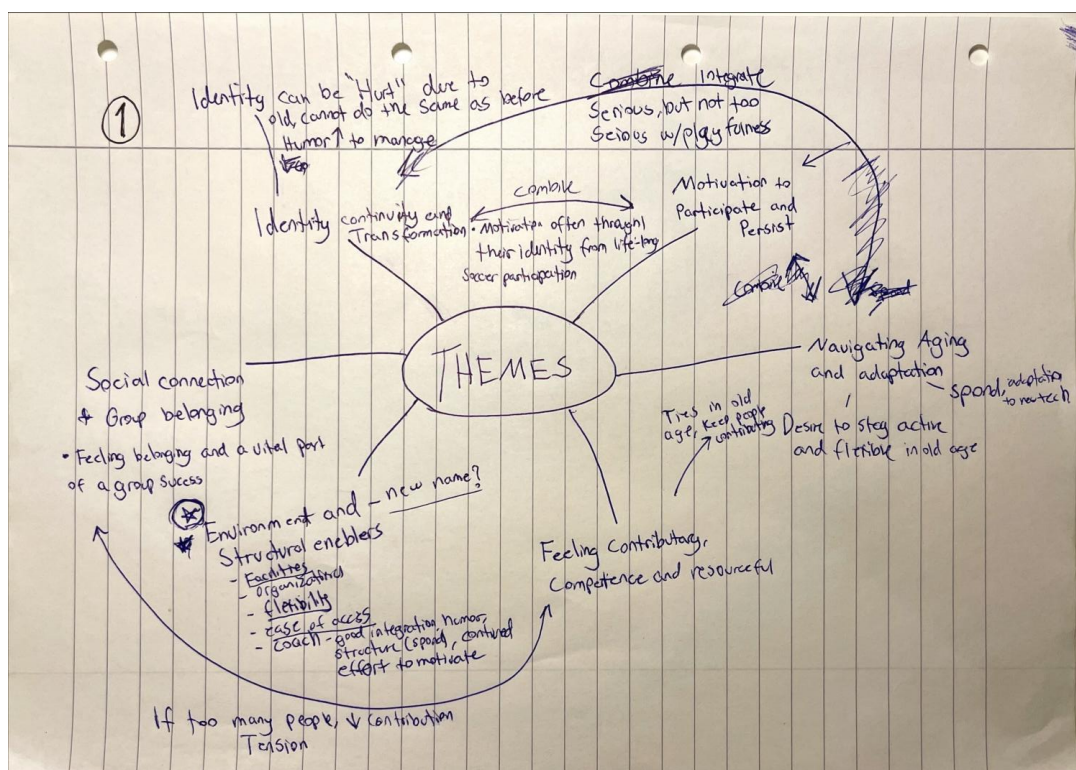 ①
Identity can be "Hurt" due to
old, cannot do the same as before
Humor ↑ to manage
Combine Integrate
Serious, but not too
Seious w/plgy fulness
Identity continuity and
Transformation
combine
• Motivation often throught
their identity from life-long
Soccer participation
Motivation to
Participate and
Persist
Combine
THEMES
Navigating Aging
and adaptation
Spond, adaptation
to new tech
Desire to stay active
and flexible in old age
Ties in old
age, keep people
contributing
Social connection
& Group belonging
• Feeling belonging and a vital part
of a group sucess
Environment and - new name?
Structural eneblers
- Facilities
- organizations
- flexibility
- ease of access
- coach - good integration, humor,
structure (spond), contiued
effort to motivate
Feeling Contributary,
Competence and resourceful
If too many people, ↓ contribution
Tension